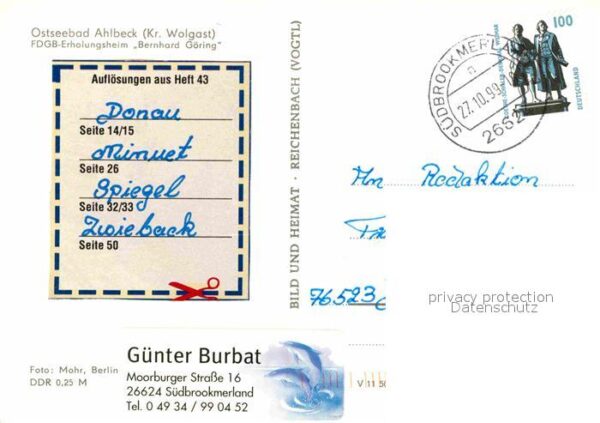 Ostseebad Ahlbeck (Kr. Wolgast)
FDGB-Erholungsheim „Bernhard Göring"
Auflösungen aus Heft 43
Donau
Seite 14/15
Minuet
Seite 26
Spiegel
Seite 32/33
Zwieback
Seite 50
BILD UND HEIMAT · REICHENBACH (VOGTL)
SÜDBROOKMERLA
27.10.99
2662
100
DEUTSCHLAND
An Redaktion
76523
privacy protection
Datenschutz
Foto: Mohr, Berlin
DDR 0,25 M
Günter Burbat
Moorburger Straße 16
26624 Südbrookmerland
Tel. 0 49 34 / 99 04 52
V 11 50